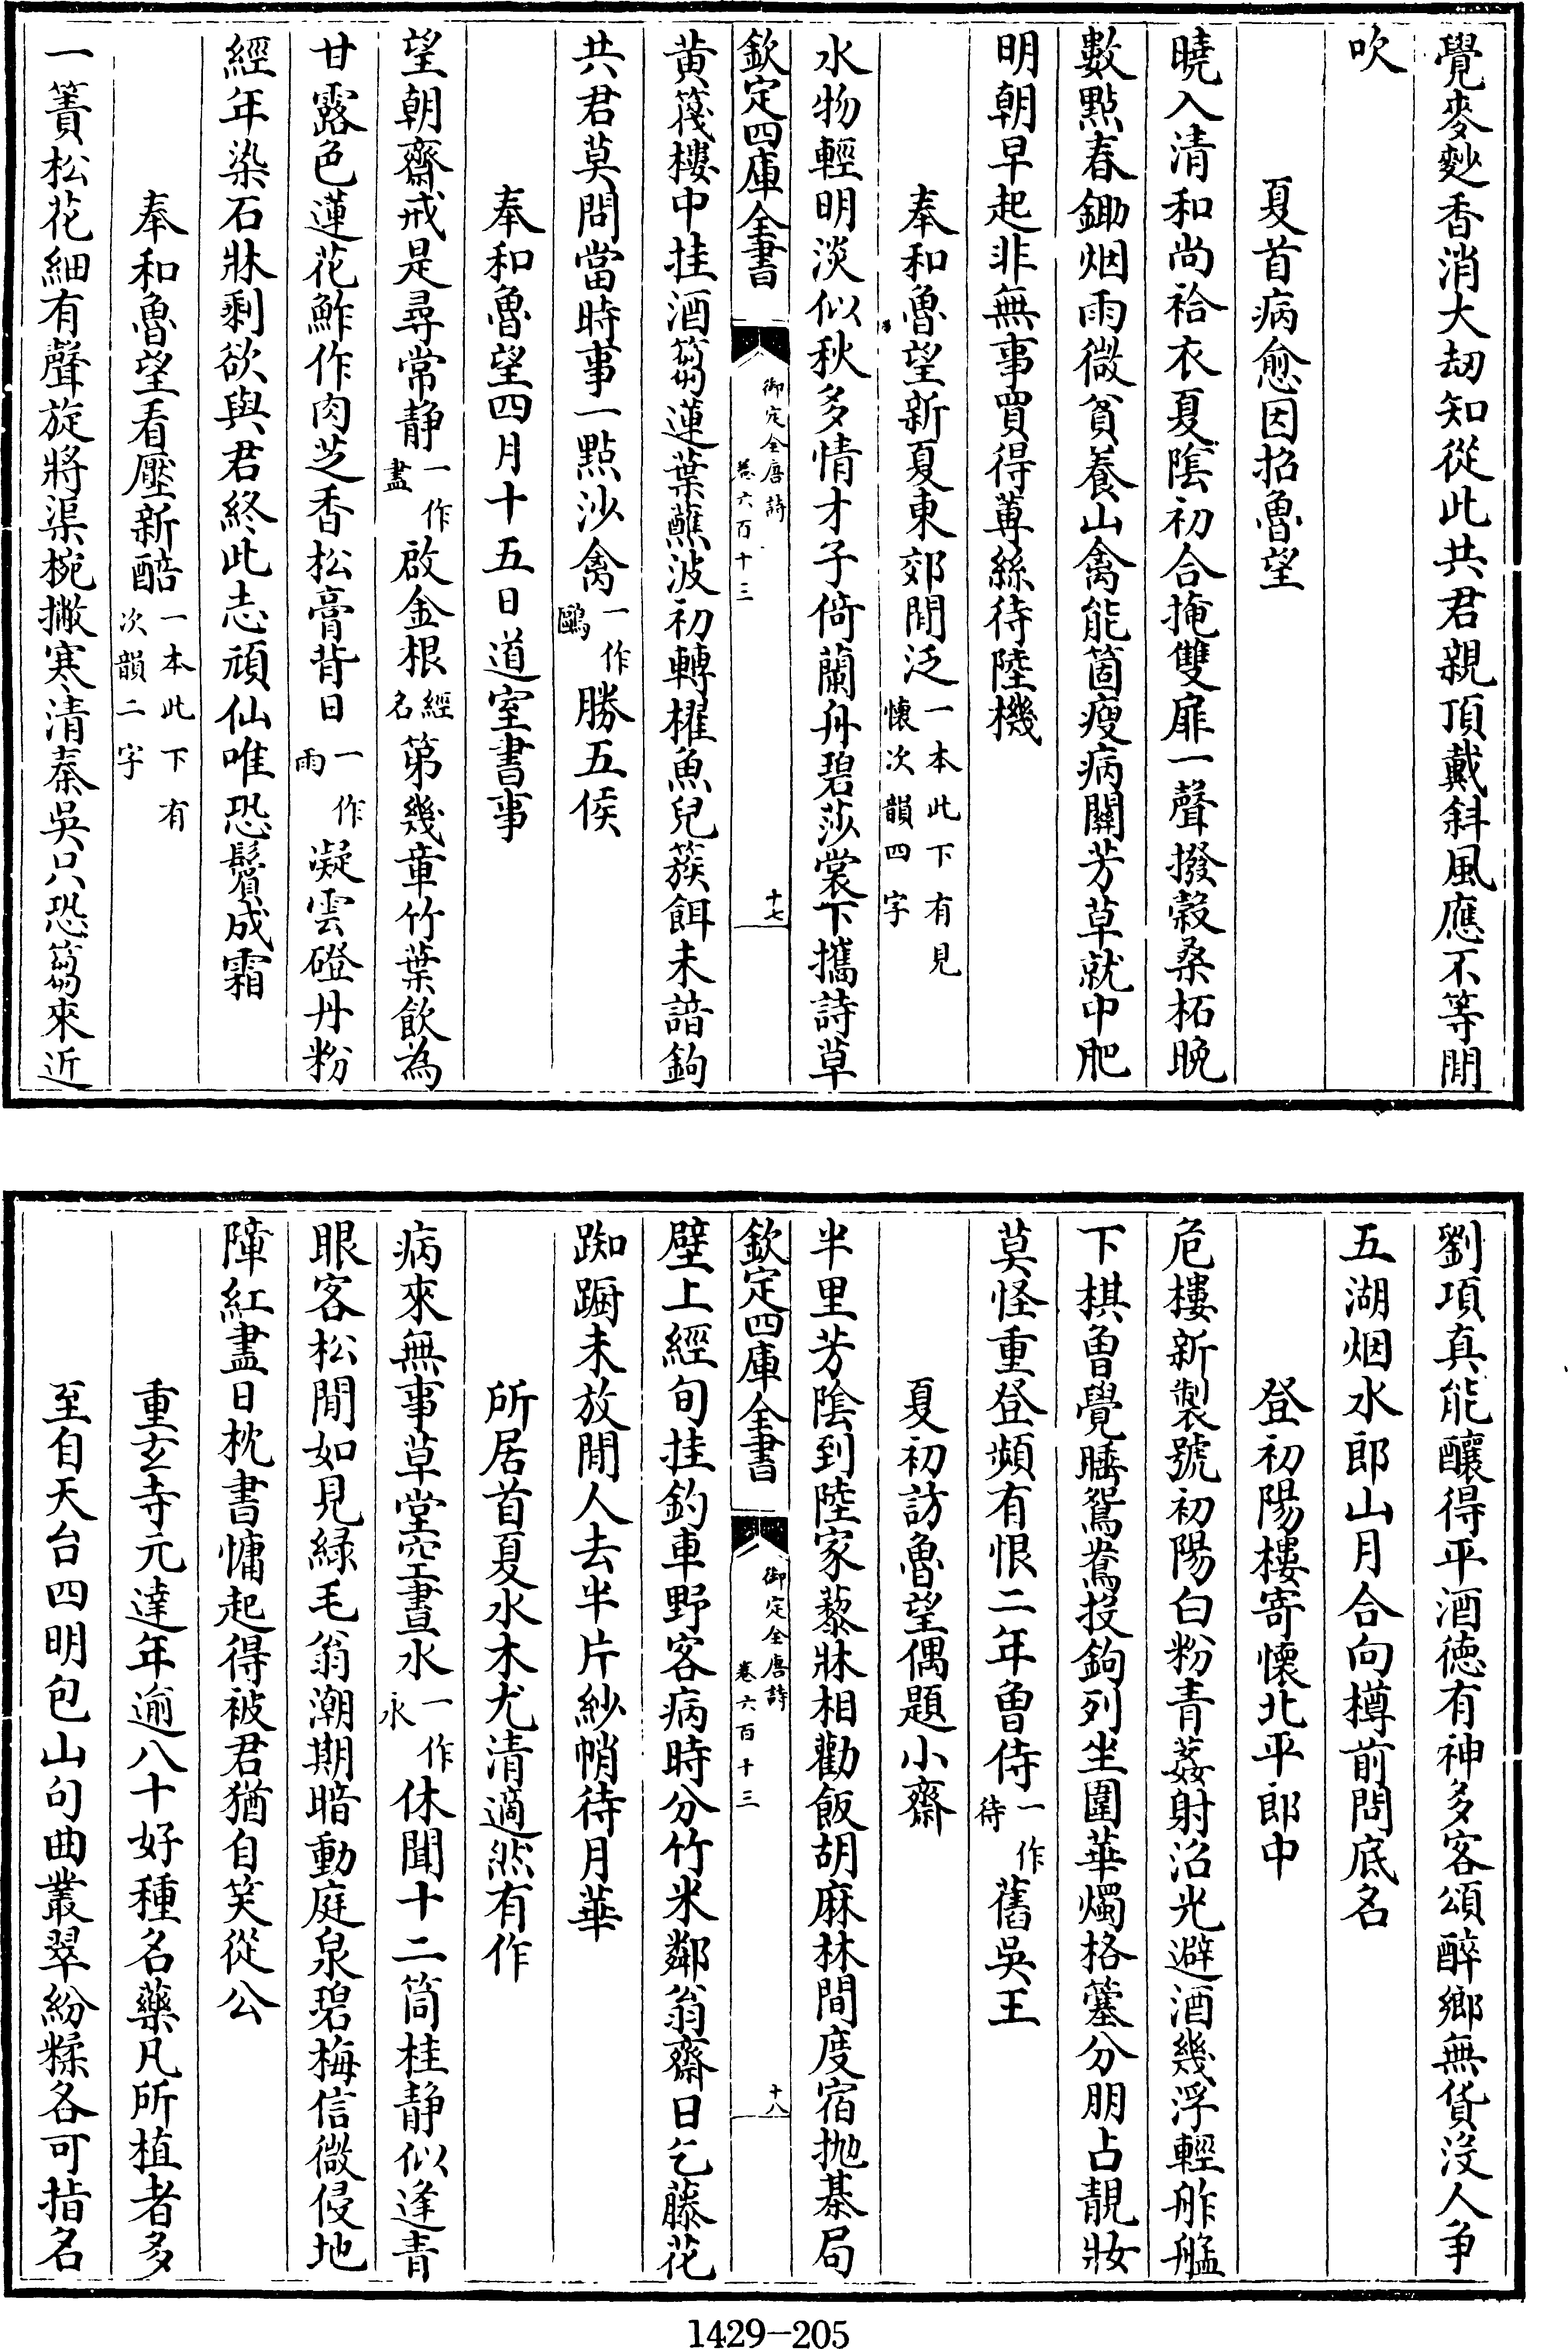 覺麥𪌘香消大劫知從此共君親頂戴斜風應不等閒
吹
夏首病愈因招魯望
曉入清和尚袷衣夏陰初合掩雙扉一聲撥榖桑柘晚
數點春鋤烟雨微貧養山禽能箇瘦病關芳草就中肥
明朝早起非無事買得蓴絲待陸機
奉和魯望新夏東郊閒泛一本此下有見懷次韻四字
水物輕明淡似秋多情才子倚蘭舟碧莎裳下攜詩草
欽定四庫全書
御定全唐詩
卷六百十三
十七
黄篾樓中挂酒篘蓮葉蘸波初轉櫂魚兒簇餌未諳鉤
共君莫問當時事一點沙禽一作鷗勝五侯
奉和魯望四月十五日道室書事
望朝齋戒是尋常静一作盡啟金根經名第幾章竹葉飲為
甘露色蓮花鮓作肉芝香松膏背日一作雨凝雲磴丹粉
經年染石牀剩欲與君終此志頑仙唯恐鬢成霜
奉和魯望看壓新醅一本此下有次韻二字
一簣松花細有聲旋將渠椀撇寒清秦吳只恐篘來近
劉項真能釀得平酒徳有神多客頌醉鄉無貨没人争
五湖烟水郎山月合向樽前問底名
登初陽樓寄懷北平郎中
危樓新製號初陽白粉青葌射沼光避酒幾浮輕舴艋
下棋曾覺睡鴛鴦投鉤列坐圍華燭格簺分朋占靚妝
莫怪重登頻有恨二年曾侍一作待舊吳王
夏初訪魯望偶題小齋
半里芳陰到陸家藜牀相勸飯胡麻林間度宿抛棊局
欽定四庫全書
御定全唐詩
卷六百十三
十八
壁上經旬挂釣車野客病時分竹米鄰翁齋日乞藤花
踟蹰未放閒人去半片紗幘待月華
所居首夏水木尤清適然有作
病來無事草堂空晝水一作永休聞十二筒桂静似逢青
眼客松閒如見緑毛翁潮期暗動庭泉碧梅信微侵地
障紅盡日枕書慵起得被君猶自笑從公
重玄寺元達年逾八十好種名藥凡所植者多
至自天台四明包山句曲叢翠紛糅各可指名
1429-205